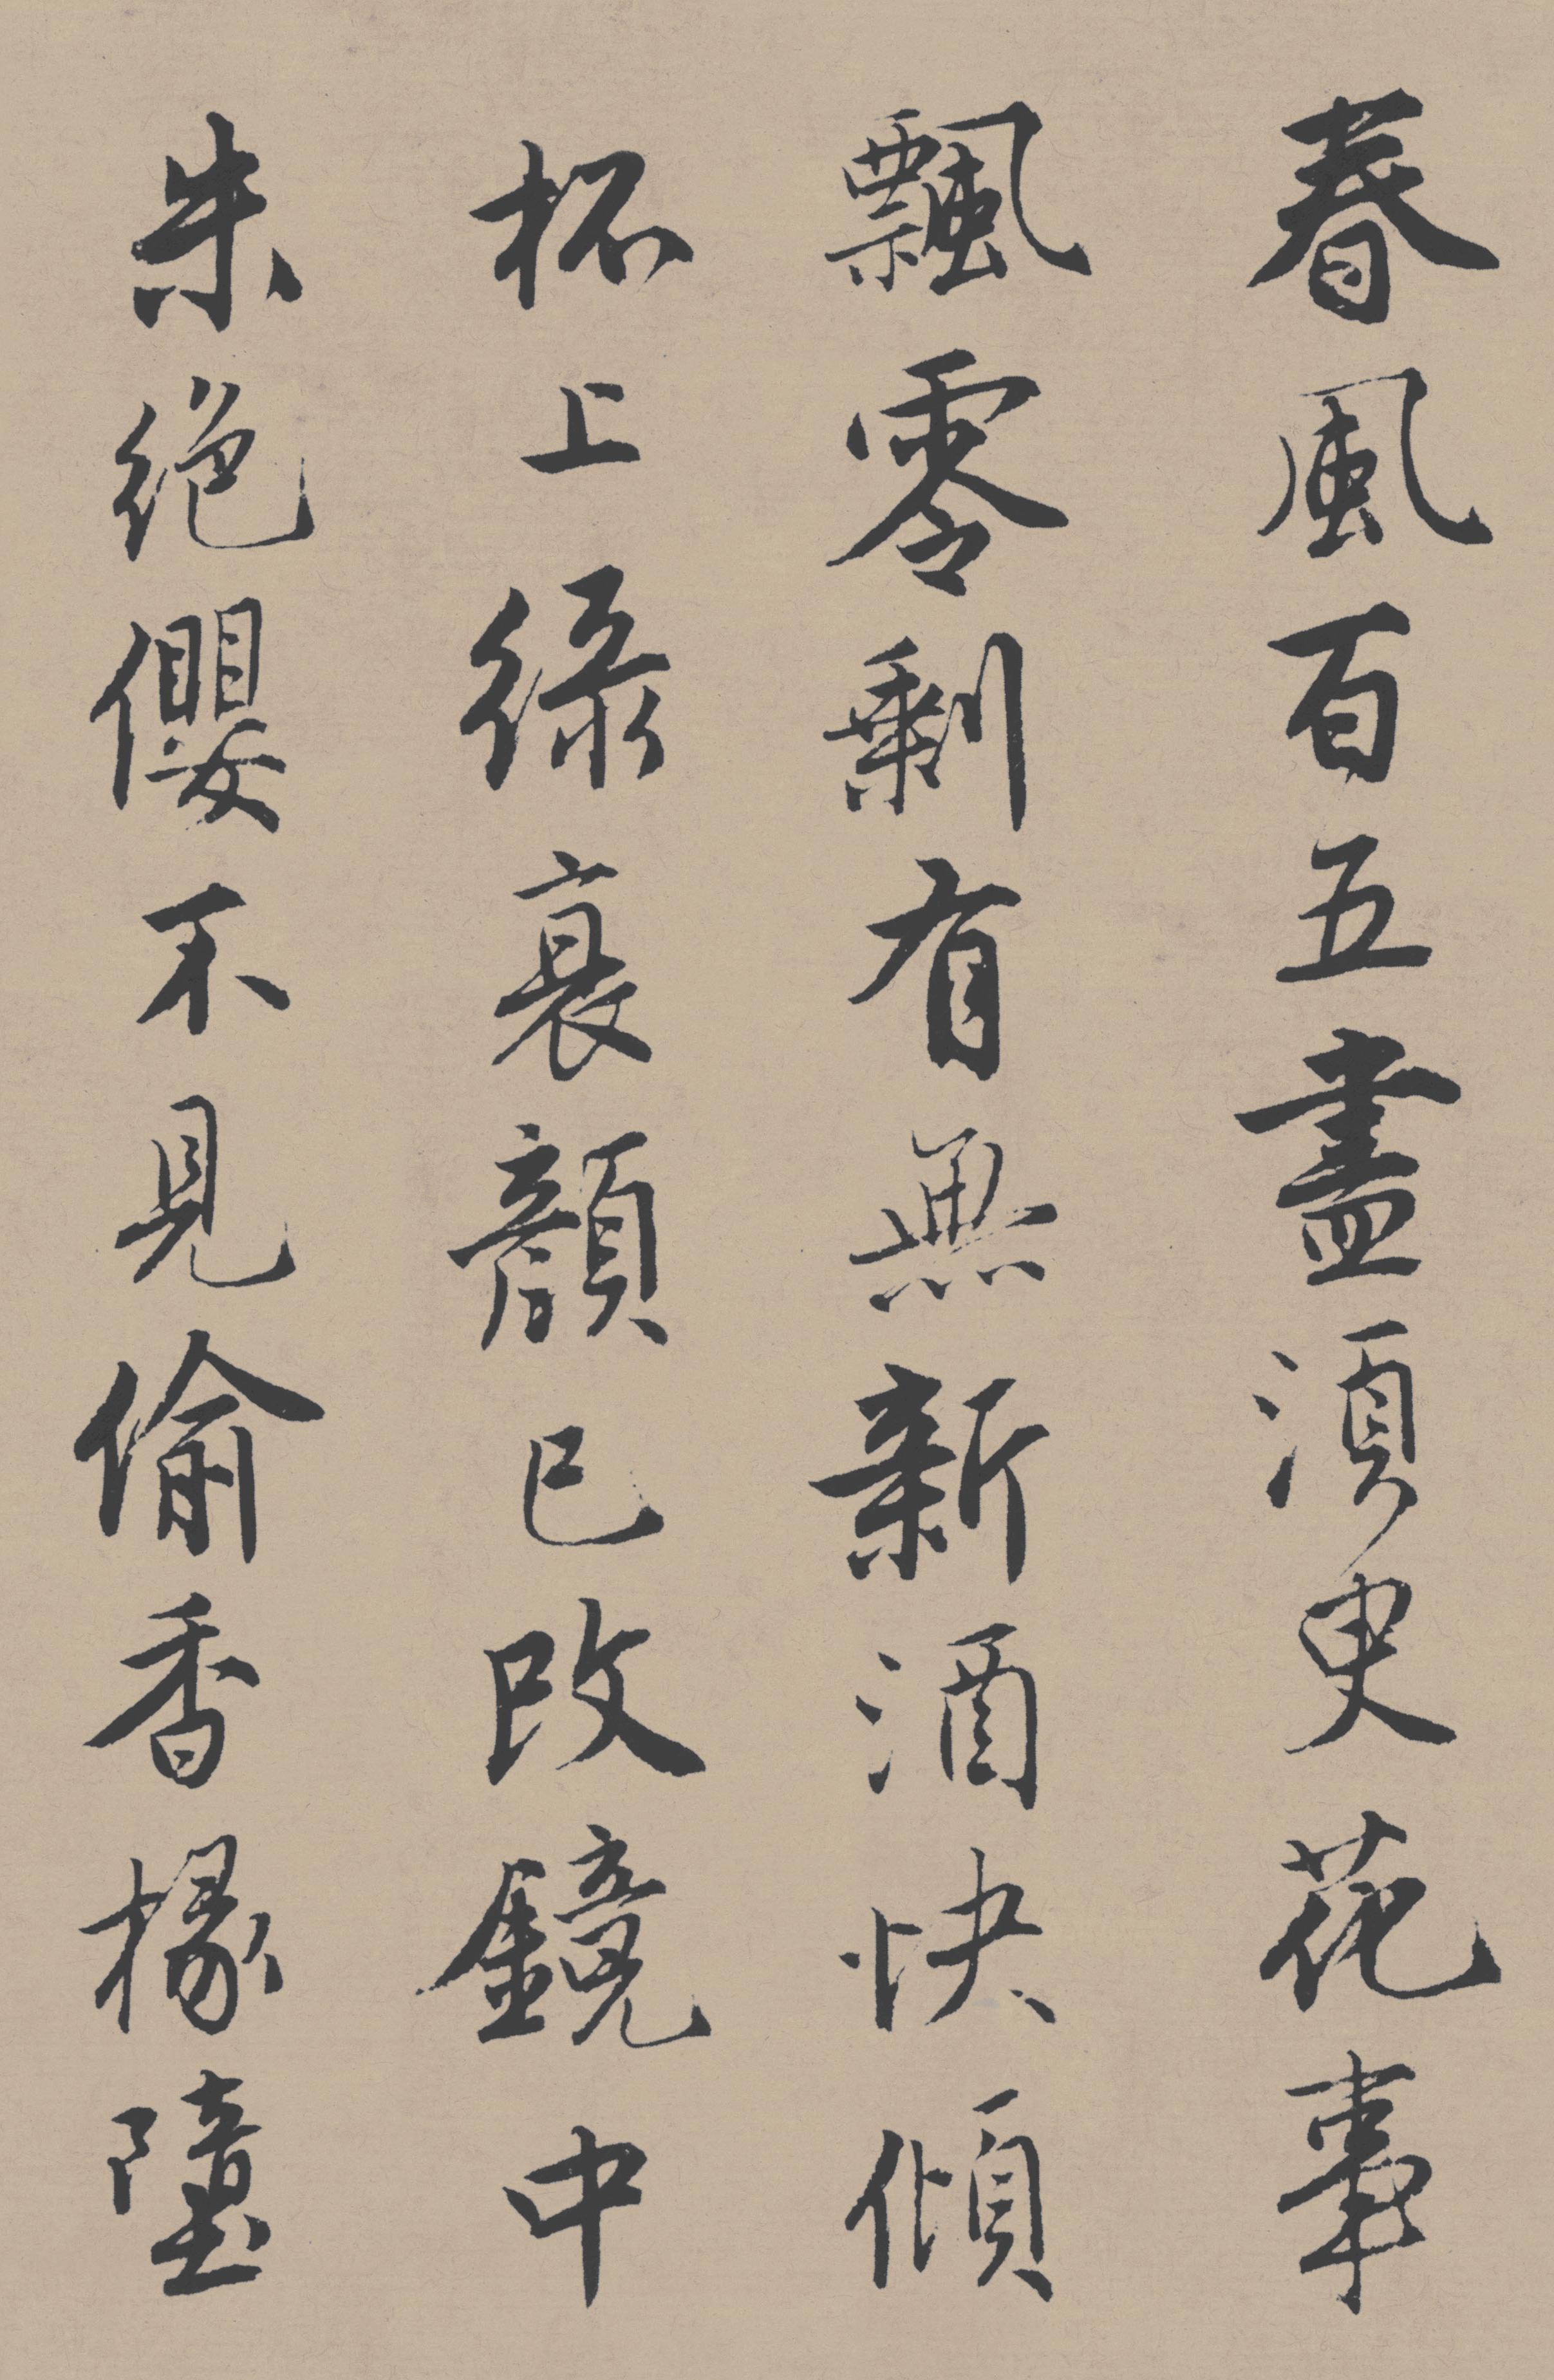 春風百五盡須臾花事
飄零剩有無新酒快傾
杯上綠衰顏已改鏡中
朱絕纓不見偷香椽墮